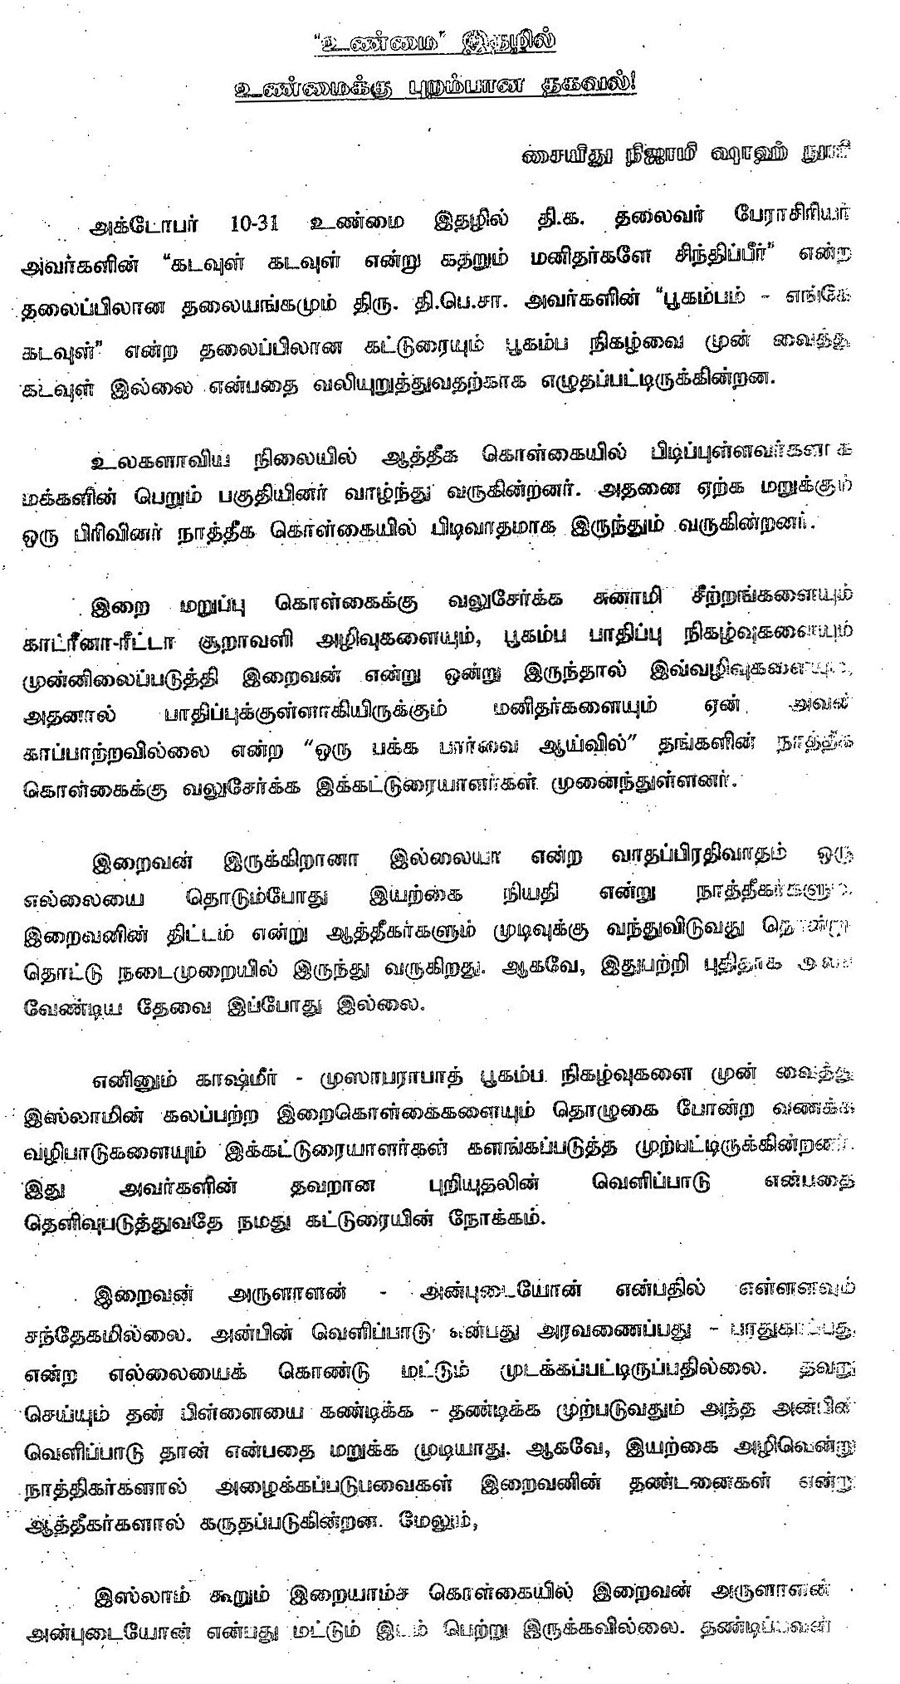 "உண்மை" இதழில்
உண்மைக்கு புறம்பான தகவல்!
சையிது நிஜாமி ஷாஹ் நூரி
அக்டோபர் 10-31 உண்மை இதழில் தி.க. தலைவர் பேராசிரியர்
அவர்களின் "கடவுள் கடவுள் என்று கதறும் மனிதர்களே சிந்திப்பீர்" என்ற
தலைப்பிலான தலையங்கமும் திரு. தி.பெ.சா. அவர்களின் "பூகம்பம் - எங்கே
கடவுள்" என்ற தலைப்பிலான கட்டுரையும் பூகம்ப நிகழ்வை முன் வைத்து
கடவுள் இல்லை என்பதை வலியுறுத்துவதற்காக எழுதப்பட்டிருக்கின்றன.
உலகளாவிய நிலையில் ஆத்தீக கொள்கையில் பிடிப்புள்ளவர்களாக
மக்களின் பெறும் பகுதியினர் வாழ்ந்து வருகின்றனர். அதனை ஏற்க மறுக்கும்
ஒரு பிரிவினர் நாத்தீக கொள்கையில் பிடிவாதமாக இருந்தும் வருகின்றனர்.
இறை மறுப்பு கொள்கைக்கு வலுசேர்க்க சுனாமி சீற்றங்களையும்
காட்ரீனா-ரீட்டா சூறாவளி அழிவுகளையும், பூகம்ப பாதிப்பு நிகழ்வுகளையும்
முன்னிலைப்படுத்தி இறைவன் என்று ஒன்று இருந்தால் இவ்வழிவுகளையும்,
அதனால் பாதிப்புக்குள்ளாகியிருக்கும் மனிதர்களையும் ஏன் அவன்
காப்பாற்றவில்லை என்ற "ஒரு பக்க பார்வை ஆய்வில்" தங்களின் நாத்தீக
கொள்கைக்கு வலுசேர்க்க இக்கட்டுரையாளர்கள் முனைந்துள்ளனர்.
இறைவன் இருக்கிறானா இல்லையா என்ற வாதப்பிரதிவாதம் ஒரு
எல்லையை தொடும்போது இயற்கை நியதி என்று நாத்தீகர்களும்,
இறைவனின் திட்டம் என்று ஆத்தீகர்களும் முடிவுக்கு வந்துவிடுவது தொன்று
தொட்டு நடைமுறையில் இருந்து வருகிறது. ஆகவே, இதுபற்றி புதிதாக அலச
வேண்டிய தேவை இப்போது இல்லை.
எனினும் காஷ்மீர் - முஸாபராபாத் பூகம்ப நிகழ்வுகளை முன் வைத்து
இஸ்லாமின் கலப்பற்ற இறைகொள்கைகளையும் தொழுகை போன்ற வணக்க
வழிபாடுகளையும் இக்கட்டுரையாளர்கள் களங்கப்படுத்த முற்பட்டிருக்கின்றனர்.
இது அவர்களின் தவறான புறியுதலின் வெளிப்பாடு என்பதை
தெளிவுபடுத்துவதே நமது கட்டுரையின் நோக்கம்.
இறைவன் அருளாளன் - அன்புடையோன் என்பதில் எள்ளளவும்
சந்தேகமில்லை. அன்பின் வெளிப்பாடு என்பது அரவணைப்பது - பாதுகாப்பது
என்ற எல்லையைக் கொண்டு மட்டும் முடக்கப்பட்டிருப்பதில்லை. தவறு
செய்யும் தன் பிள்ளையை கண்டிக்க - தண்டிக்க முற்படுவதும் அந்த அன்பின்
வெளிப்பாடு தான் என்பதை மறுக்க முடியாது. ஆகவே, இயற்கை அழிவென்று
நாத்திகர்களால் அழைக்கப்படுபவைகள் இறைவனின் தண்டனைகள் என்று
ஆத்தீகர்களால் கருதப்படுகின்றன. மேலும்,
இஸ்லாம் கூறும் இறையாம்ச கொள்கையில் இறைவன் அருளாளன்
அன்புடையோன் என்பது மட்டும் இடம் பெற்று இருக்கவில்லை. தண்டிப்பவன்